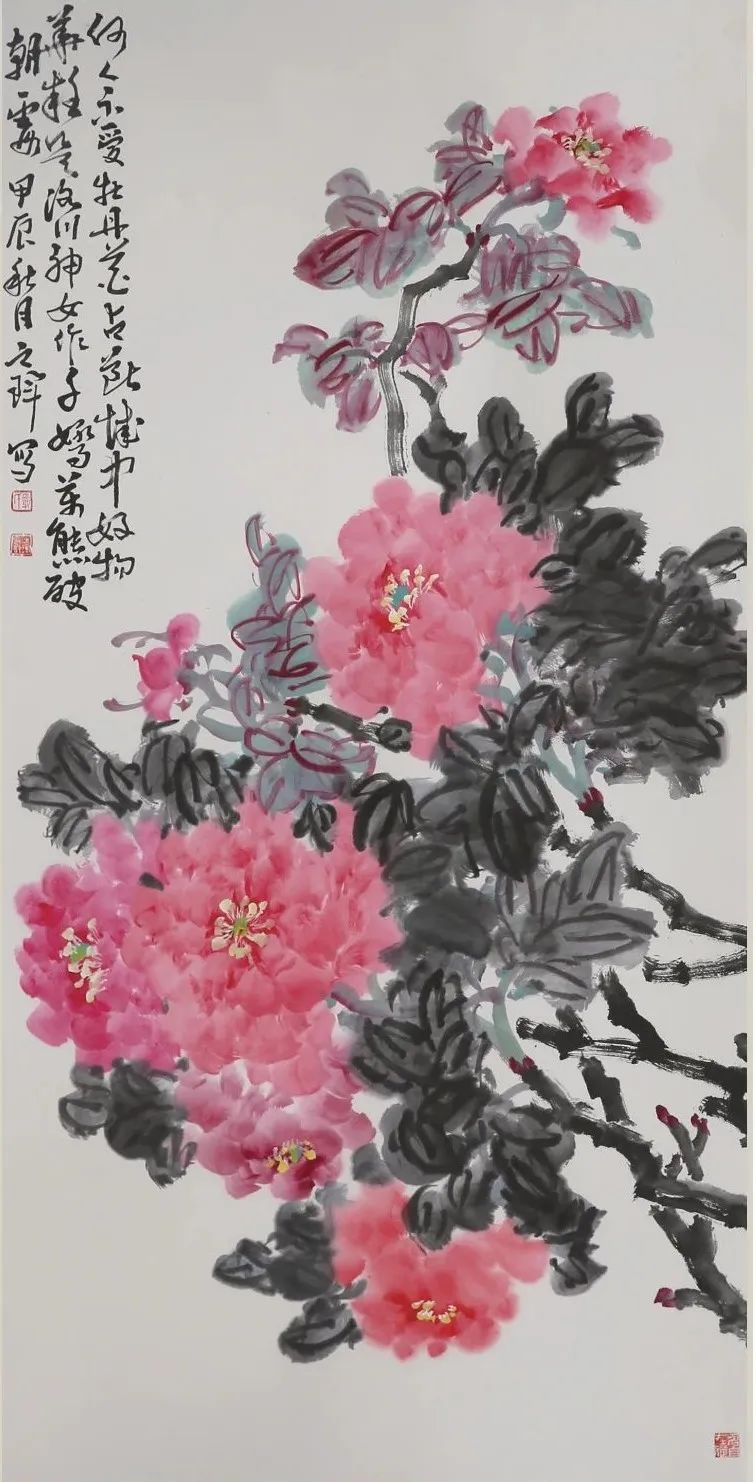 何人不愛牡丹花占断城中好物
華疑是洛川神女作千嬌萬態破
朝霞 甲辰秋月 写